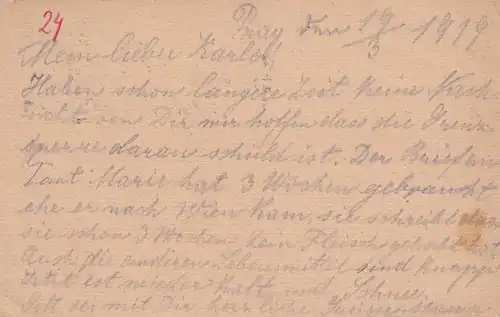 24
Prag den 19/3 1919
Mein lieber Karle!
Haben schon längere Zeit keine Nach-
richt von Dir, wir hoffen dass die Grenz-
sperre daran schuld ist. Der Brief an
Tant Marie hat 3 Wochen gebraucht
ehe er nach Wien kam, sie schreibt dass
sie schon 3 Wochen kein Fleisch gehabt
Auch die anderen Lebensmittel sind knapp
Jetzt ist wieder kalt und Schnee.
Gott sei mit Dir herzliche